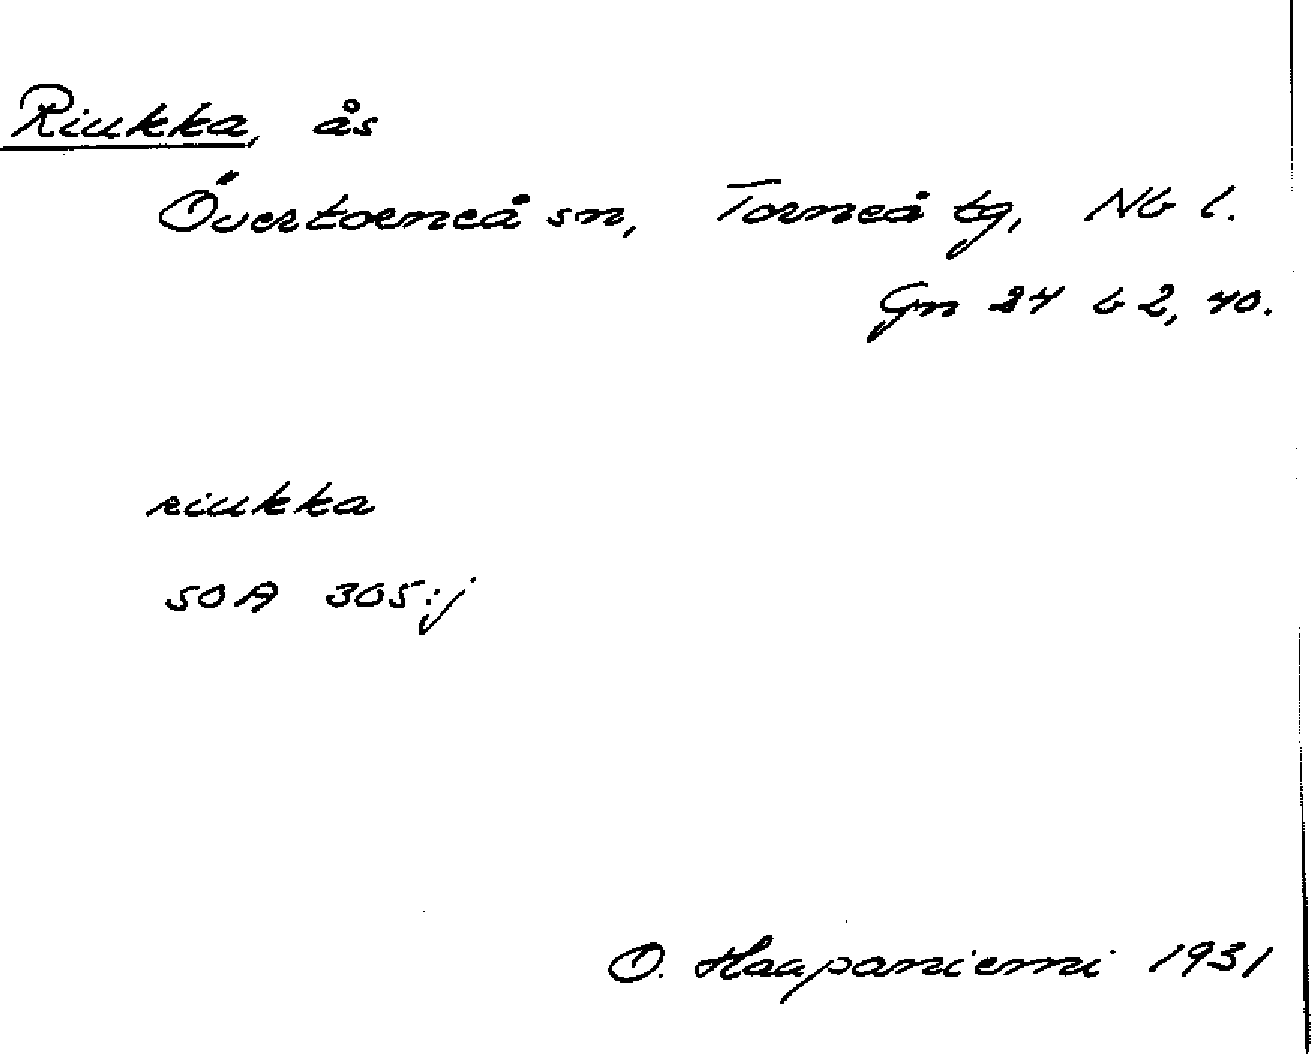 Riukka, ås
Övertorneå sn, Torneå tg, Nb l.
Gn 24 b 2, 40.
riukka
SOA 305:j
O. Haapaniemi 1931